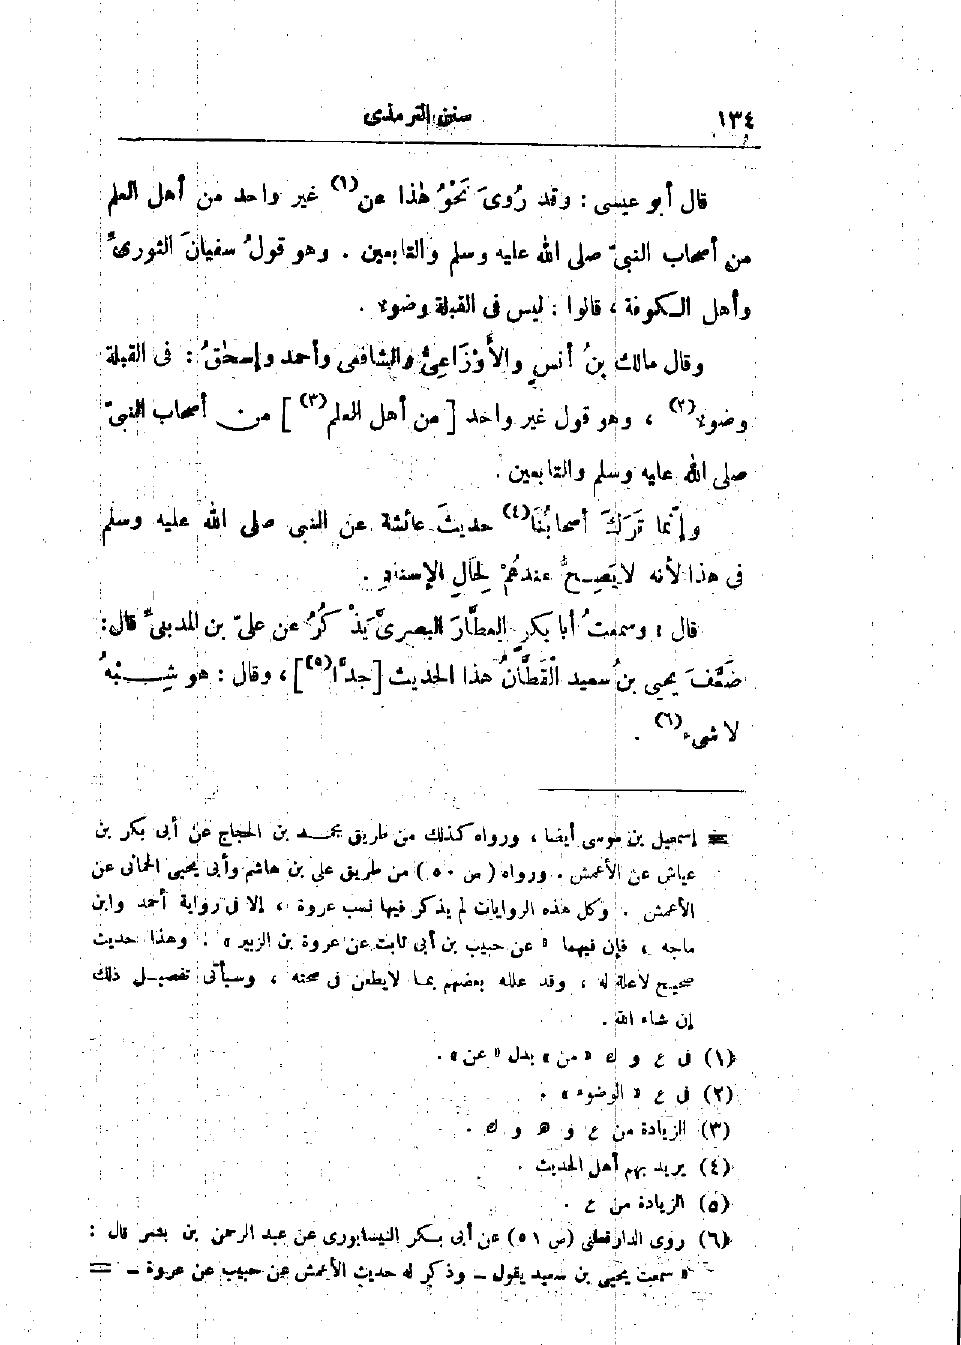 ١٣٤
سنن الترمذى
قال أبو عيسى : وقد رُوِىَ نَحْوُ هٰذا عن(١) غير واحد من أهل العلم
من أصحاب النبىّ صلى الله عليه وسلم والتابعين . وهو قولُ سفيانَ الثورىِّ
وأهل الكوفة ، قالوا : ليس فى القبلة وضوء .
وقال مالك بنُ أنس والأَوْزَاعِىُّ والشافعى وأحمد وإسحٰقُ : فى القبلة
وضوء(٢) ، وهو قول غير واحد [ من أهل العلم(٣) ] من أصحاب النبىّ
صلى الله عليه وسلم والتابعين .
وإنّما تَرَكَ أصحابُنَا(٤) حديثَ عائشة عن النبى صلى الله عليه وسلم
فى هذا لأنه لا يَصِحُّ عندهُمْ لِحَالِ الإسنادِ .
قال : وسمعتُ أبا بكرٍ العطَّارَ البصرىَّ يَذْكُرُ عن علىّ بن المدينىِّ قال:
ضَعَّفَ يحيى بنُ سعيد الْقَطَّانُ هذا الحديث [جدًّا(٥)] ، وقال : هو شِبْهُ
لا شىء(٦) .
= إسمعيل بن موسى أيضا ، ورواه كذلك من طريق محمد بن الحجاج عن أبى بكر بن
عياش عن الأعمش . ورواه ( ص ٥٠ ) من طريق على بن هاشم وأبى يحيى الحمانى عن
الأعمش . وكل هذه الروايات لم يذكر فيها نسب عروة ، إلا فى رواية أحمد وابن
ماجه ، فإن فيهما « عن حبيب بن أبى ثابت عن عروة بن الزبير » . وهذا حديث
صحيح لا علة له ، وقد علله بعضهم بما لا يطعن فى صحته ، وسيأتى تفصيل ذلك
إن شاء الله .
(١) فى ع و ك « من » بدل « عن » .
(٢) فى ع « الوضوء » .
(٣) الزيادة من ع و ه و ك .
(٤) يريد بهم أهل الحديث .
(٥) الزيادة من ع .
(٦) روى الدارقطنى (ص ٥١) عن أبى بكر النيسابورى عن عبد الرحمن بن بشر قال :
« سمعت يحيى بن سعيد يقول ـ وذكر له حديث الأعمش عن حبيب عن عروة ـ =